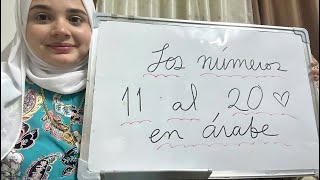 Los números
11 al 20 ♡
en árabe